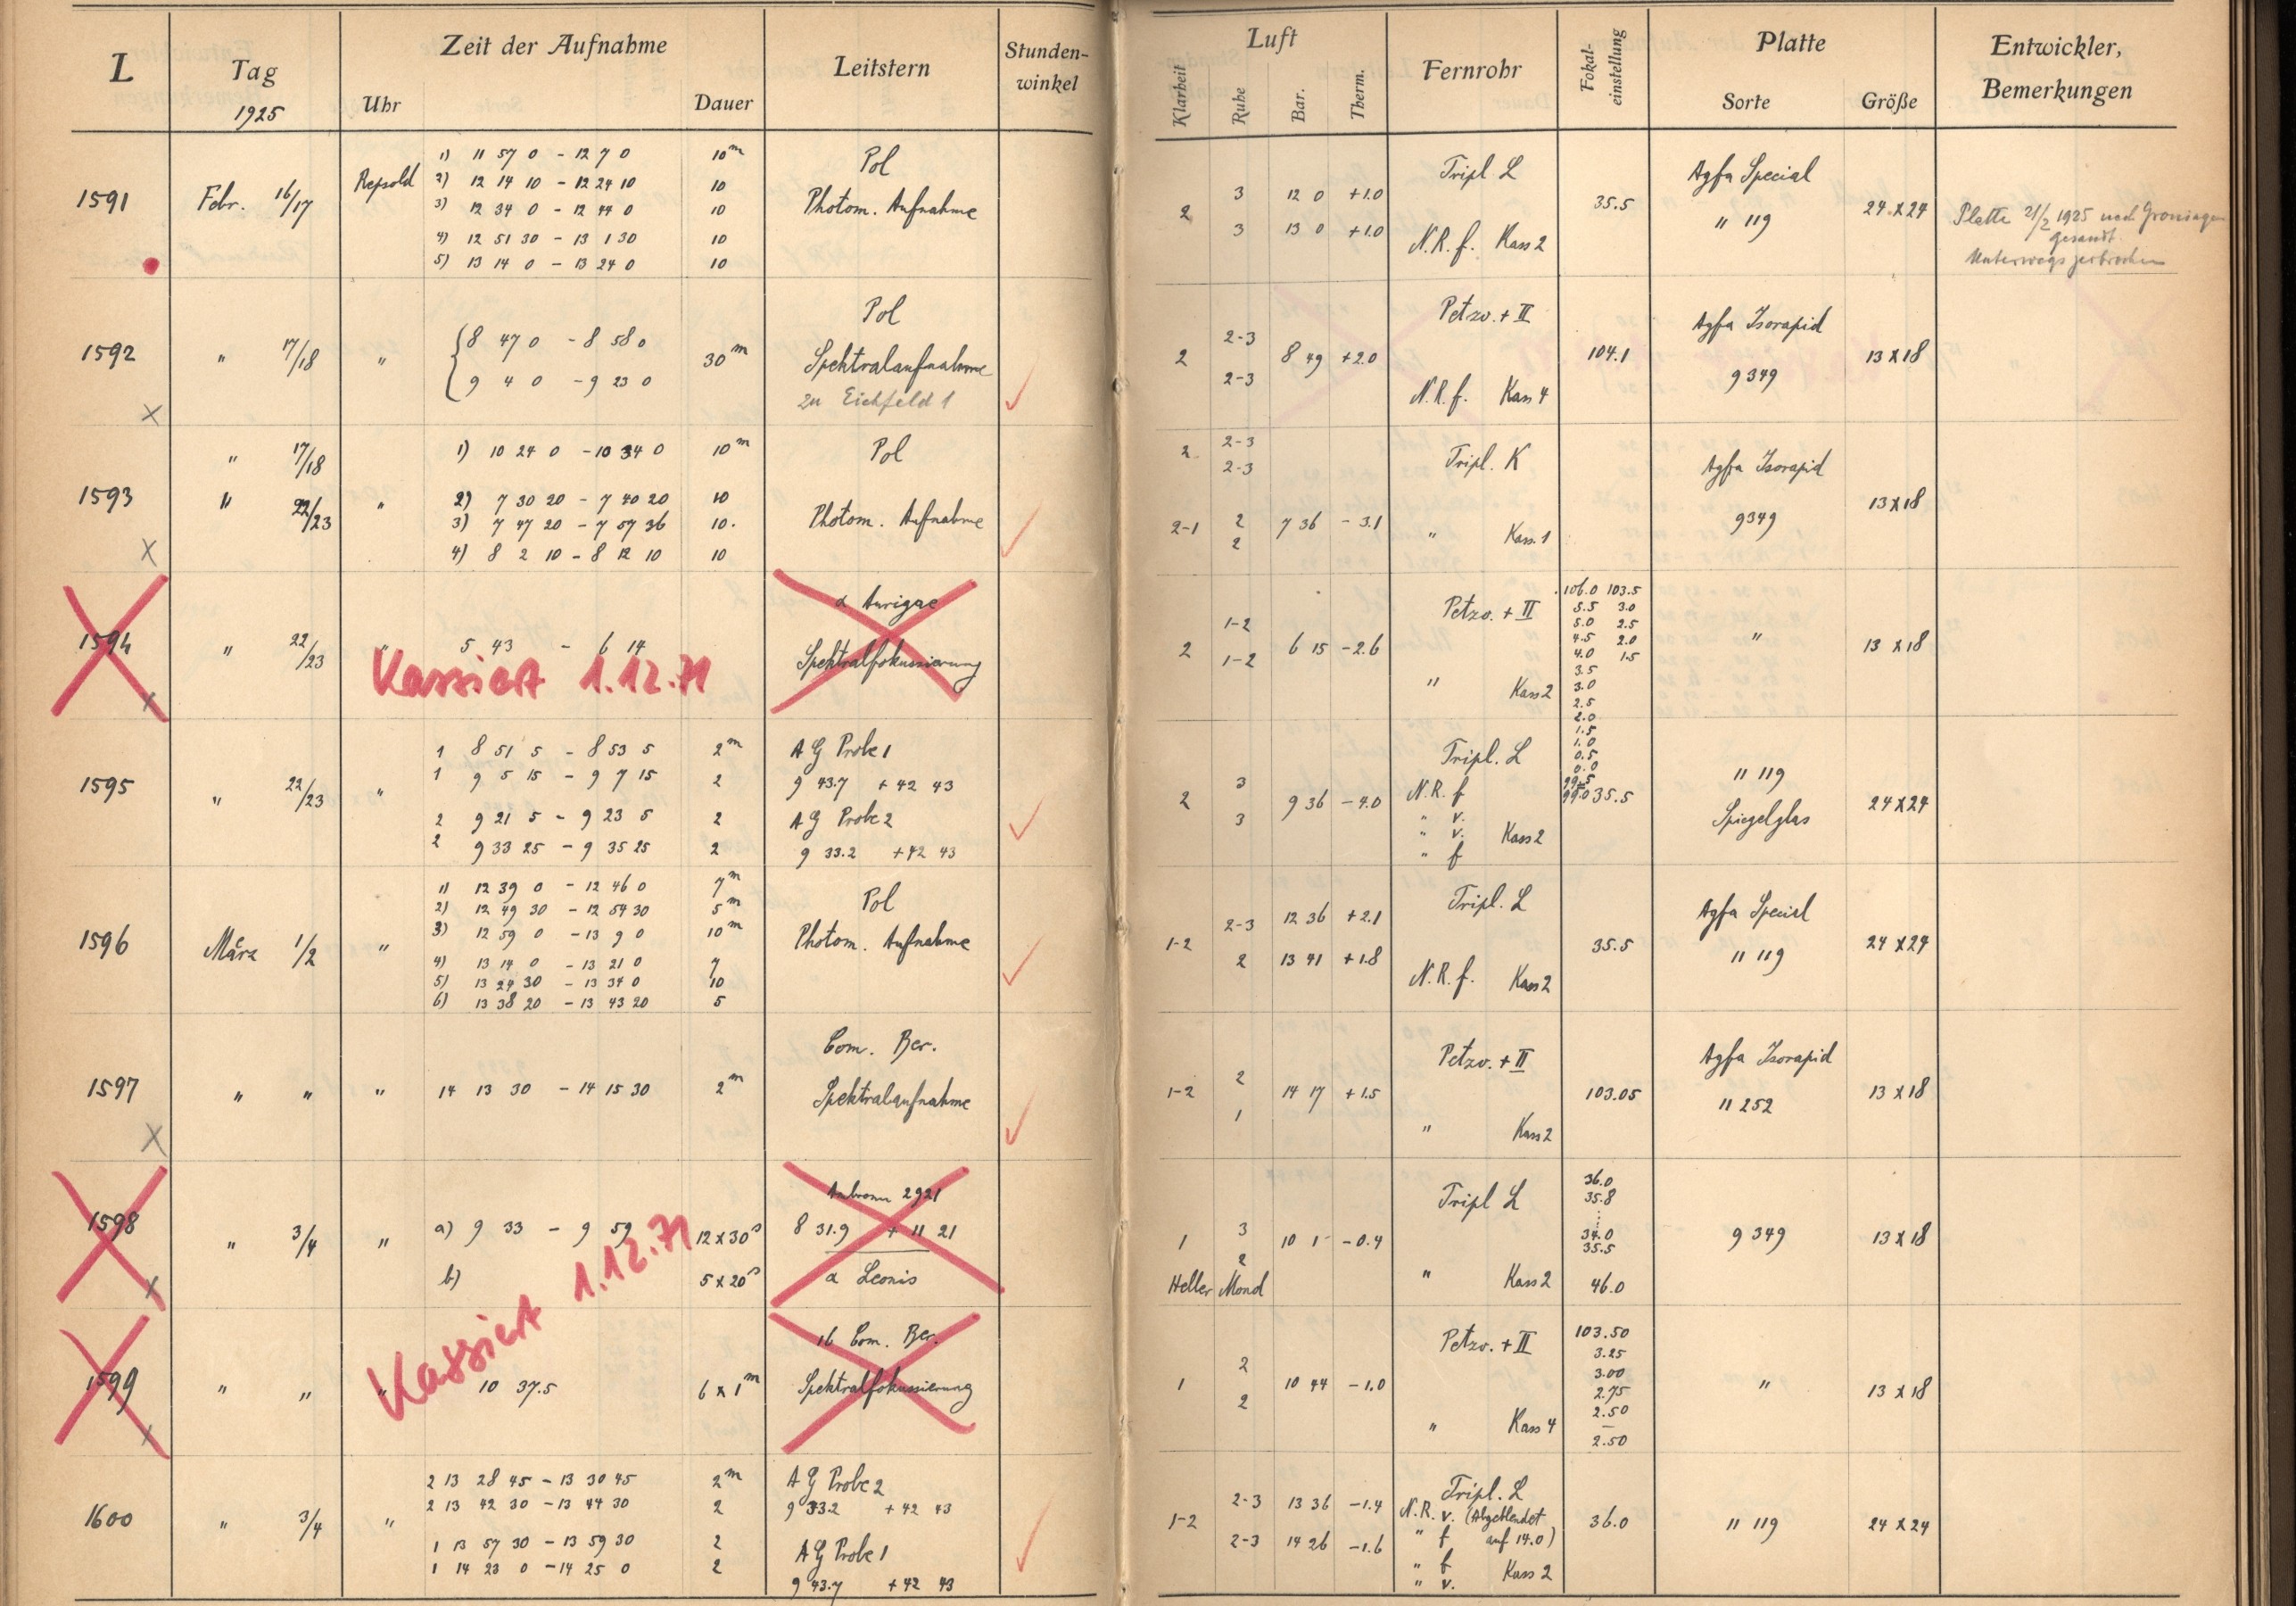 L Tag 1925 Zeit der Aufnahme Uhr Dauer Leitstern Stunden-winkel
Luft Klarheit Ruhe Bar. Therm. Fernrohr Fokal-einstellung Platte Sorte Größe Entwickler, Bemerkungen
1591 Febr. 16/17 Repsold
1) 11 57 0 - 12 7 0 10m
2) 12 14 10 - 12 24 10 10
3) 12 34 0 - 12 44 0 10
4) 12 51 30 - 13 1 30 10
5) 13 14 0 - 13 24 0 10
Pol
Photom. Aufnahme
2
3 12 0 +1.0
3 13 0 +1.0
Tripl L
N.R. f. Kass 2
35.5
Agfa Special
11 119
24 x 24
Platte 21/2 1925 nach Groningen
gesandt.
Unterwegs zerbrochen
1592 " 17/18 "
8 47 0 - 8 58 0
9 4 0 - 9 23 0
30m
Pol
Spektralaufnahme
zu Eichfeld 1
2
2-3
2-3
8 49 +2.0
Petzv. + II
N.R. f. Kass 4
104.1
Agfa Isorapid
9349
13 x 18
1593
" 17/18
1) 10 24 0 - 10 34 0 10m
" 22/23 "
2) 7 30 20 - 7 40 20 10
3) 7 47 20 - 7 57 36 10.
4) 8 2 10 - 8 12 10 10
Pol
Photom. Aufnahme
2
2-3
2-3
2-1
2
2
7 36 - 3.1
Tripl. K
" Kass. 1
Agfa Isorapid
9349
13 x 18
1594 " 22/23 "
5 43 - 6 14
Kassiert 1.12.71
α Aurigae
Spektralfokussierung
2
1-2
1-2
6 15 -2.6
Petzv. + II
" Kass 2
106.0 103.5
5.5 3.0
5.0 2.5
4.5 2.0
4.0 1.5
3.5
3.0
2.5
2.0
1.5
1.0
0.5
0.0
99.5
99.0
"
13 x 18
1595 " 22/23 "
1 8 51 5 - 8 53 5 2m
1 9 5 15 - 9 7 15 2
2 9 21 5 - 9 23 5 2
2 9 33 25 - 9 35 25 2
A G Probe 1
9 43.7 + 42 43
A G Probe 2
9 33.2 + 42 43
2
3
3
9 36 - 4.0
Tripl. L
N.R. f
" v.
" v. Kass 2
" f
35.5
11 119
Spiegelglas
24 x 24
1596 März 1/2 "
1) 12 39 0 - 12 46 0 7m
2) 12 49 30 - 12 54 30 5m
3) 12 59 0 - 13 9 0 10m
4) 13 14 0 - 13 21 0 7
5) 13 24 30 - 13 34 0 10
6) 13 38 20 - 13 43 20 5
Pol
Photom. Aufnahme
1-2
2-3 12 36 +2.1
2 13 41 +1.8
Tripl. L
N.R. f. Kass 2
35.5
Agfa Special
11 119
24 x 24
1597 " " "
14 13 30 - 14 15 30 2m
Com. Ber.
Spektralaufnahme
1-2
2
1
14 17 +1.5
Petzv. + II
" Kass 2
103.05
Agfa Isorapid
11 252
13 x 18
1598 " 3/4 "
a) 9 33 - 9 59 12 x 30s
b) 5 x 20s
Ambronn 2921
8 31.9 + 11 21
α Leonis
1
3
2
10 1 -0.4
Heller Mond
Tripl L
" Kass 2
36.0
35.8
34.0
35.5
46.0
9 349
13 x 18
Kassiert 1.12.71
1599 " " "
10 37.5 6 x 1m
16 Com. Ber.
Spektralfokussierung
1
2
2
10 44 -1.0
Petzv. + II
" Kass 4
103.50
3.25
3.00
2.75
2.50
2.50
"
13 x 18
1600 " 3/4 "
2 13 28 45 - 13 30 45 2m
2 13 42 30 - 13 44 30 2
1 13 57 30 - 13 59 30 2
1 14 23 0 - 14 25 0 2
A G Probe 2
9 33.2 + 42 43
A G Probe 1
9 43.7 + 42 43
1-2
2-3 13 36 -1.4
2-3 14 26 -1.6
Tripl. L
N.R. v. (Abgeblendet
" f auf 14.0)
" f Kass 2
" v.
36.0
11 119
24 x 24